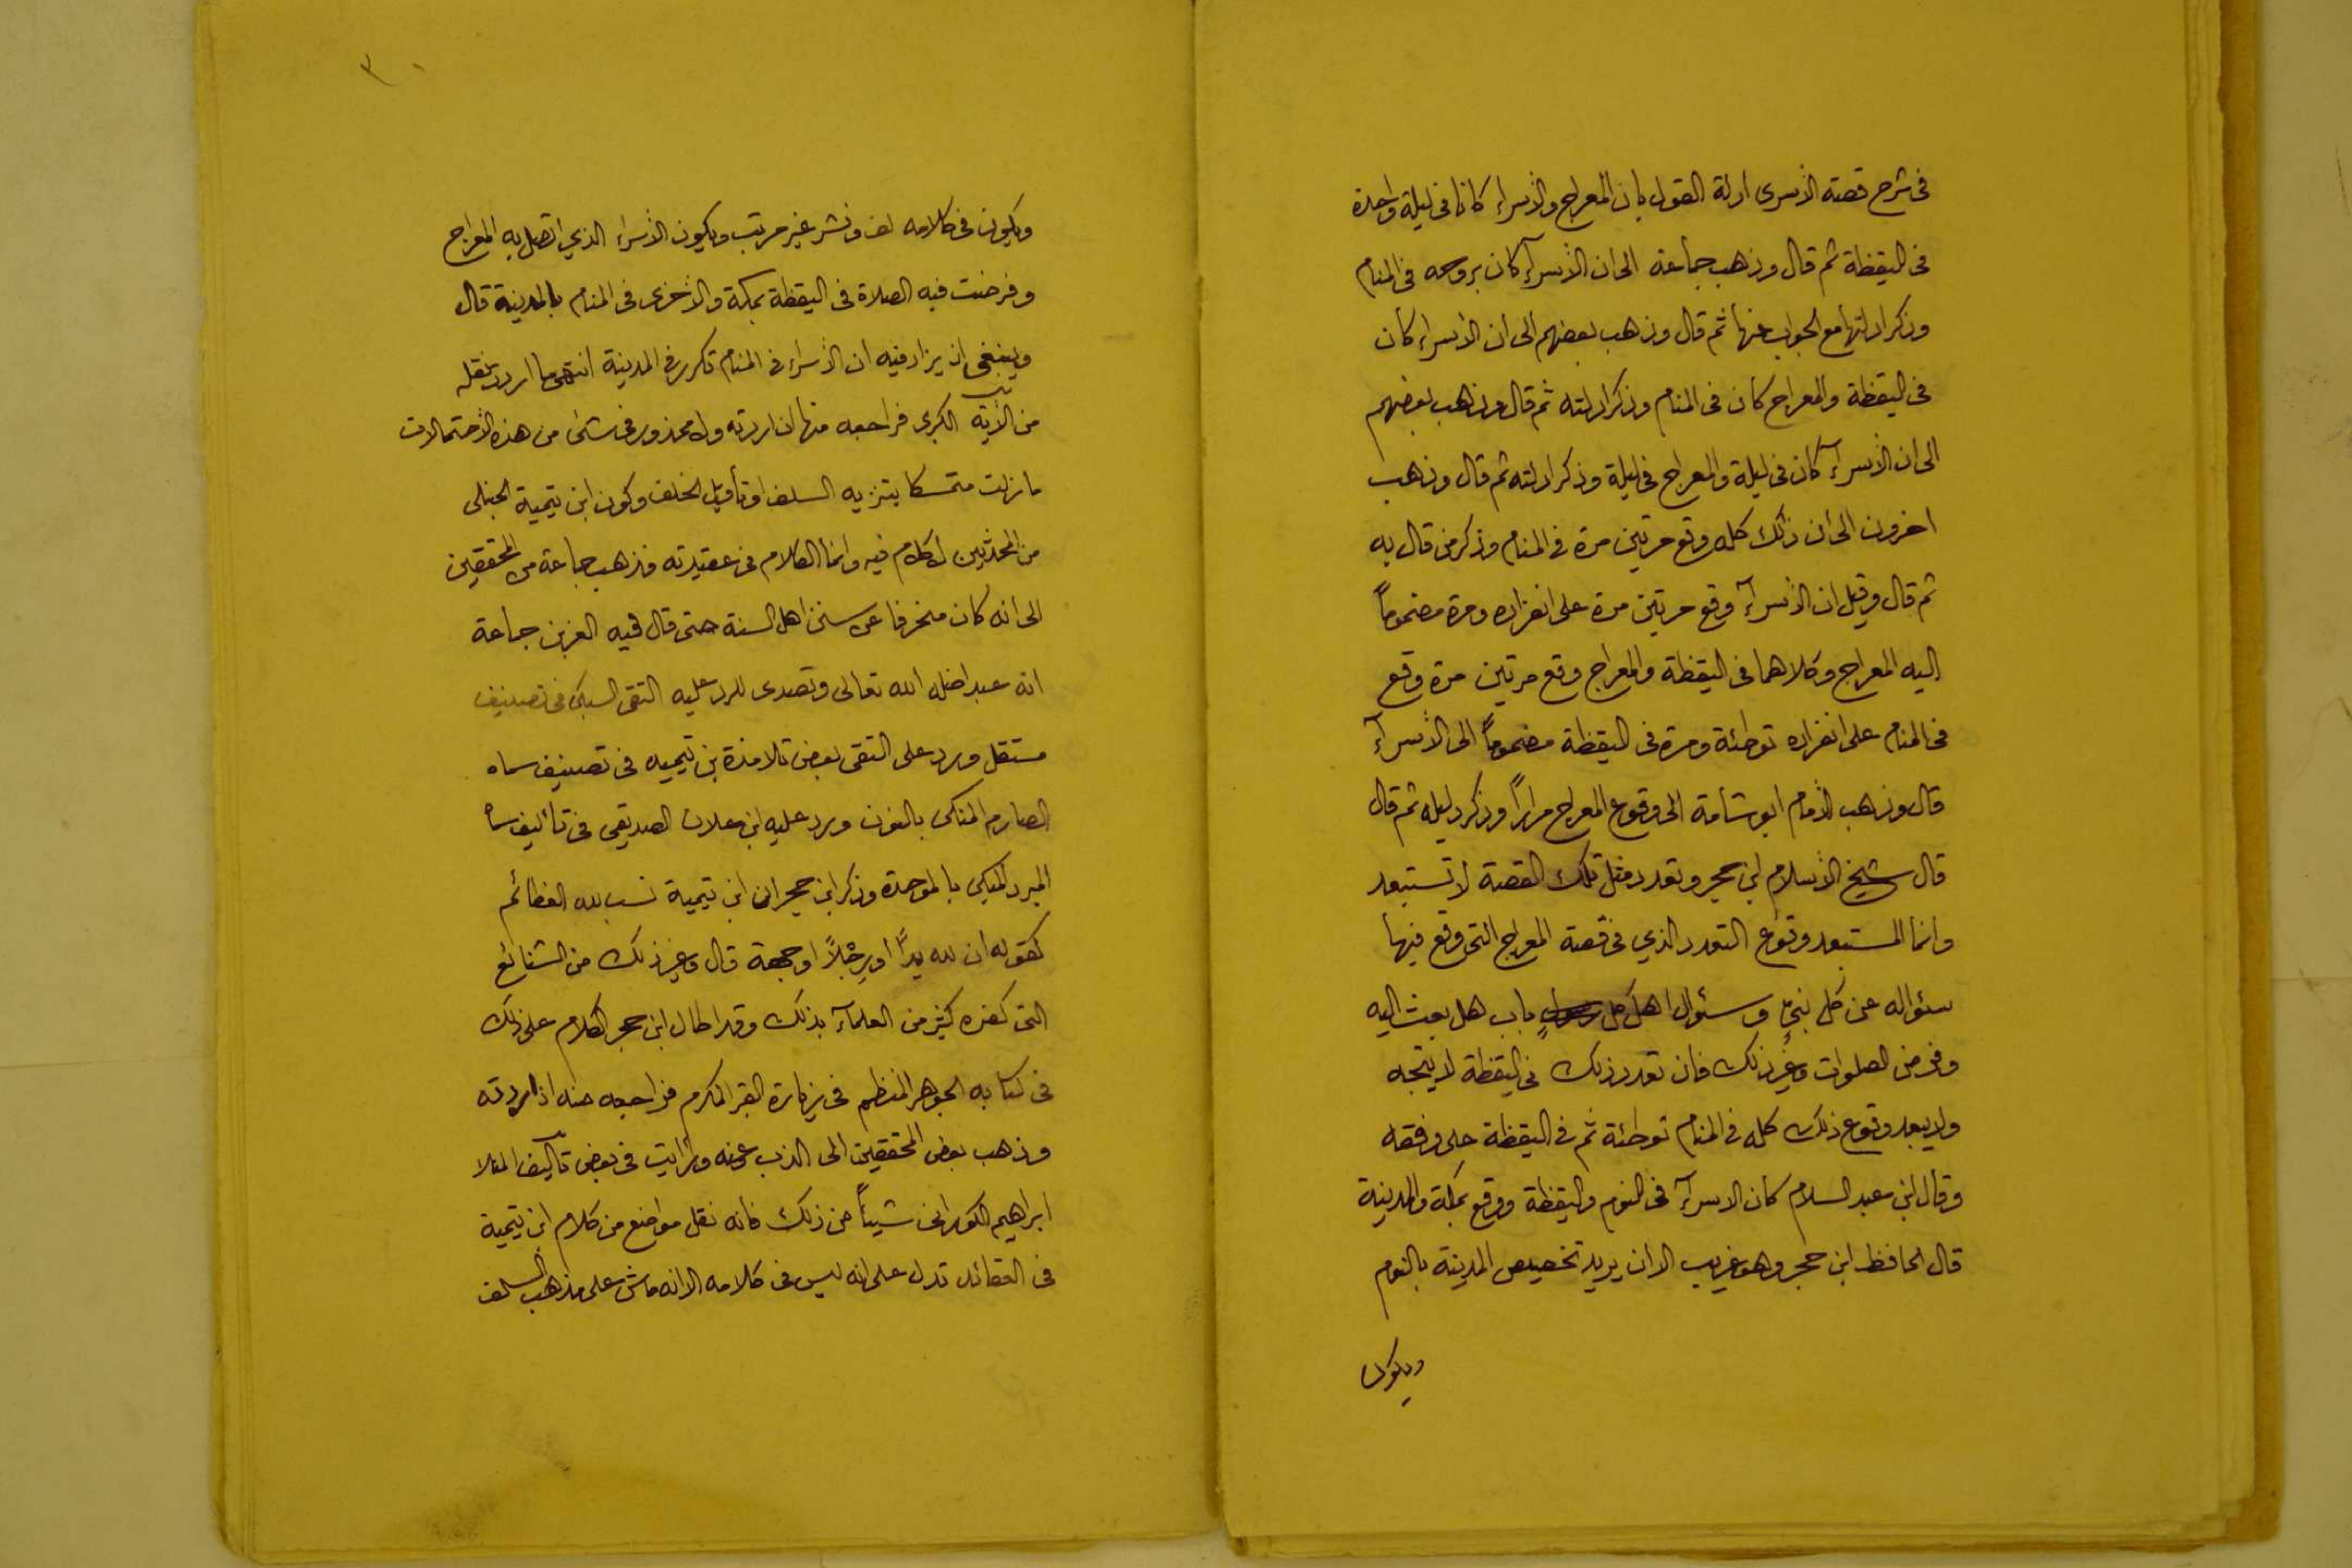 في شرح قصته الأسرى أدلة القول بان المعراج والأسراء كانا في ليلة واحدة
في اليقظة ثم قال وذهب جماعة الى ان الأسرآء كان بروحه في المنام
وذكر ادلتها مع الجواب عنها ثم قال وذهب بعضهم الى ان الأسراء كان
في اليقظة والمعراج كان في المنام وذكر ادلته ثم قال وذهب بعضهم
الى ان الأسرآء كان في ليلة والمعراج في ليلة وذكر ادلته ثم قال وذهب
اخرون الى ان ذلك كله وقع مرتين مرة في المنام وذكر من قال به
ثم قال وقيل ان الأسرآء وقع مرتين مرة على انفراده ومرة مضموماً
اليه المعراج وكلاهما في اليقظة والمعراج وقع مرتين مرة وقع
في المنام على انفراده توطئة ومرة في اليقظة مضموماً الى الأسرآء
قال وذهب الأمام ابو شامة الى وقوع المعراج مراراً وذكر دليله ثم قال
قال شيخ الأسلام ابن حجر وتعدد مثل تلك القصة لا تستبعد
وانما المستبعد وقوع التعدد الذي في قصة المعراج التي وقع فيها
سئواله عن كل نبي وسئوال اهل كل باب هل بعث اليه
وفرض الصلوات وغير ذلك فان تعدد ذلك في اليقظة لا يتجه
ولا يبعد وقوع ذلك كله في المنام توطئة ثم في اليقظة على وفقه
وقال ابن عبد السلام كان الاسرآء في النوم واليقظة ووقع بمكة والمدينة
قال الحافظ ابن حجر وهو غريب الا ان يريد تخصيص المدينة بالنوم
ويكون
٣٠
ويكون في كلامه لف ونشر غير مرتب ويكون الأسراء الذي اتصل به المعراج
وفرضت فيه الصلاة في اليقظة بمكة والأخرى في المنام بالمدينة قال
وينبغي ان يزاد فيه ان الأسراء في المنام تكرر في المدينة انتهى ما اردت نقله
من الأية الكبرى فراجعه منها ان اردته ولا محذور في شئ من هذه الأحتمالات
ما زلت متمسكا بتنزيه السلف او تأويل الخلف وكون ابن تيمية الحنبلى
من المحدثين لا كلام فيه وانما الكلام في عقيدته فذهب جماعة من المحققين
الى انه كان منحرفا عن سنن اهل السنة حتى قال فيه العز بن جماعة
انه عبد اضله الله تعالى وتصدى للرد عليه التقى السبكى في تصنيف
مستقل ورد على التقى بعض تلامذة بن تيميه في تصنيف سماه
الصارم المنكى بالنون ورد عليه ابن علان الصديقى في تأليف سماه
المبرد المبكى بالموحدة وذكر ابن حجر ان ابن تيمية نسب لله العظائم
كقوله ان لله يداً او رجلاً او جهة قال وغير ذلك من الشنائع
التى كفره كثير من العلمآء بذلك وقد اطال ابن حجر الكلام على ذلك
في كتابه الجوهر المنظم في زيارة القبر المكرم فراجعه منه اذا اردته
وذهب بعض المحققين الى الذب عنه ورأيت في بعض تآليف الملا
ابراهيم الكورانى شيئاً من ذلك فانه نقل مواضع من كلام ابن تيمية
في العقائد تدل على انه ليس في كلامه الا انه ماش على مذهب السلف